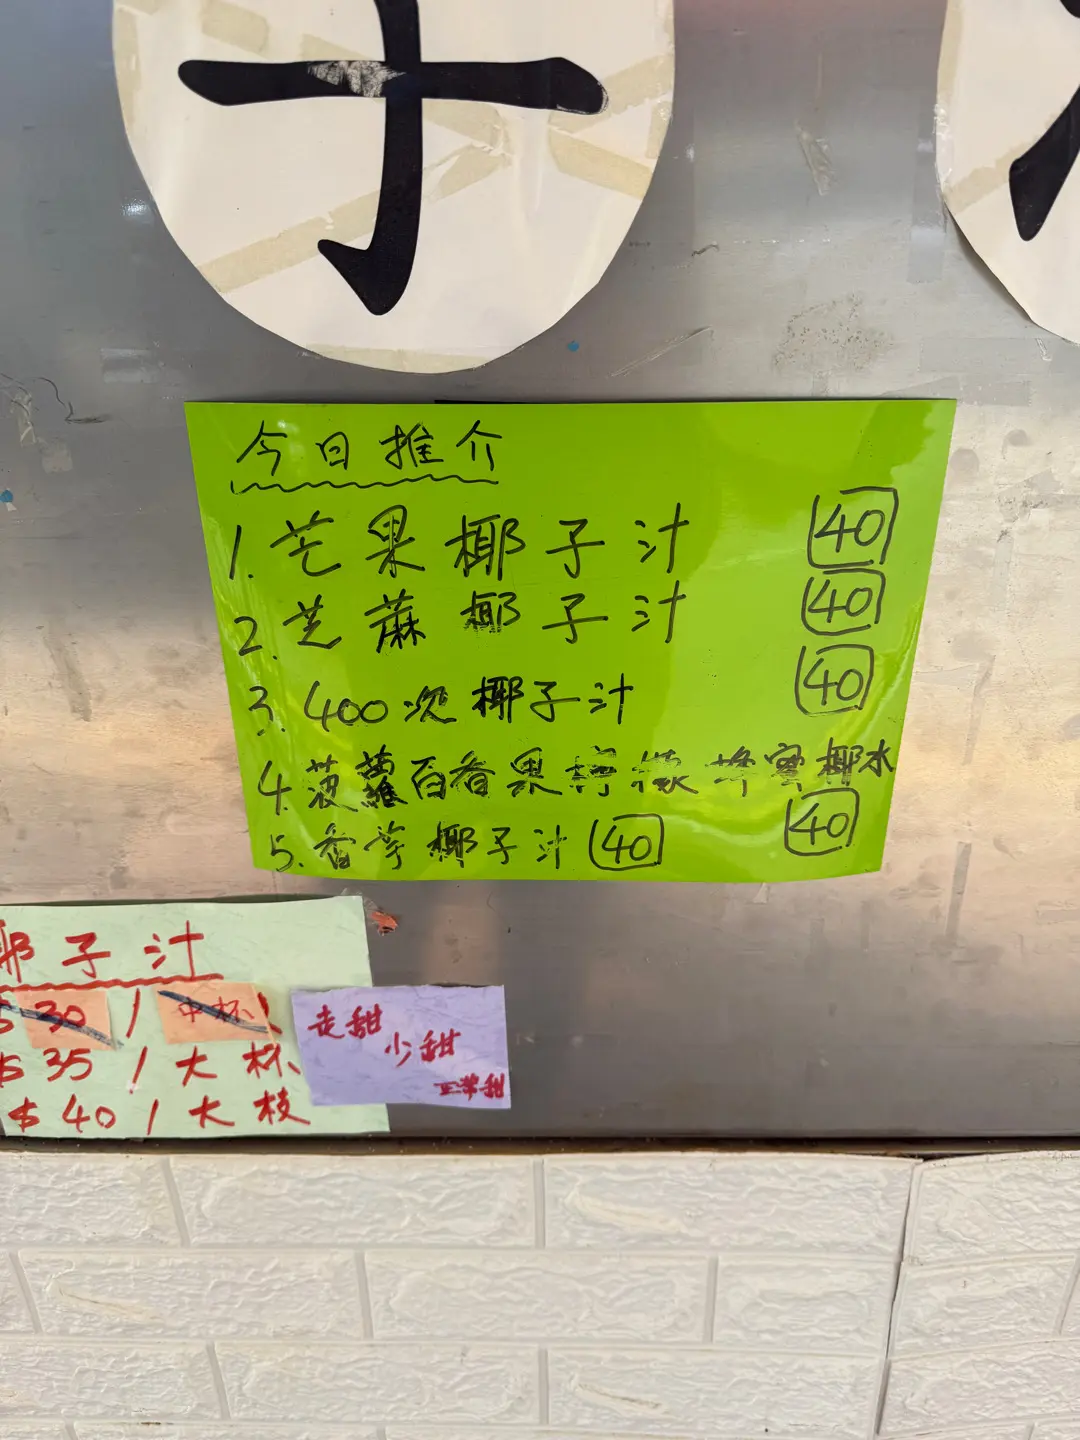 子
今日推介
1. 芒果椰子汁 40
2. 芝蔴椰子汁 40
3. 400次椰子汁 40
4. 菠蘿百香果檸檬蜂蜜椰水 40
5. 香芋椰子汁 40
椰子汁
$30/中杯
$35/大杯
$40/大枝
走甜
少甜
正常甜